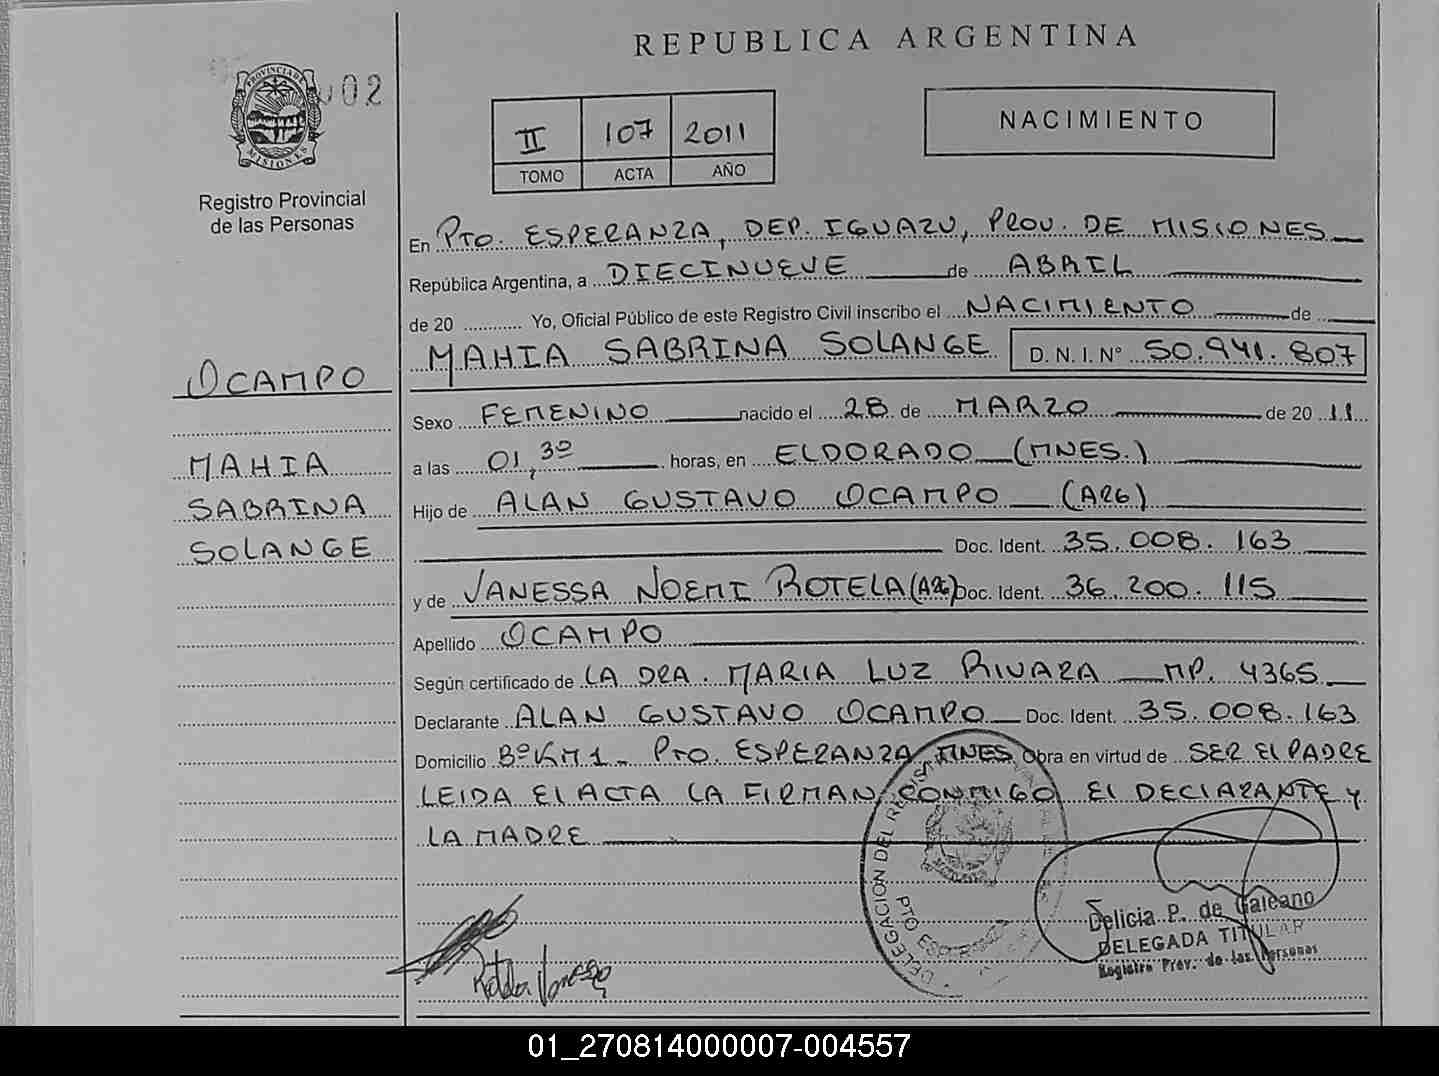 REPUBLICA ARGENTINA
PROVINCIA DE MISIONES
02
Registro Provincial
de las Personas
II 107 2011
TOMO ACTA AÑO
NACIMIENTO
En PTO. ESPERANZA, DEP. IGUAZU, PROV. DE MISIONES
República Argentina, a DIECINUEVE de ABRIL
de 20 ............ Yo, Oficial Público de este Registro Civil inscribo el NACIMIENTO de
MAHIA SABRINA SOLANGE D.N.I.N° 50.941.807
OCAMPO
MAHIA
SABRINA
SOLANGE
Sexo FEMENINO nacido el 28 de MARZO de 2011
a las 01,30 horas, en ELDORADO (MNES.)
Hijo de ALAN GUSTAVO OCAMPO (ARG)
Doc. Ident. 35.008.163
y de VANESSA NOEMI ROTELA (ARG) Doc. Ident. 36.200.115
Apellido OCAMPO
Según certificado de LA DRA. MARIA LUZ RIVARA MP. 4365
Declarante ALAN GUSTAVO OCAMPO Doc. Ident. 35.008.163
Domicilio B° KM 1 - PTO ESPERANZA MNES Obra en virtud de SER EL PADRE
LEIDA EL ACTA LA FIRMAN CONMIGO EL DECLARANTE Y
LA MADRE
DELEGACION DEL
PTO ESPERANZA
Rotela Vanessa
Delicia P. de Galeano
DELEGADA TITULAR
Registro Prov. de las Personas
01_270814000007-004557